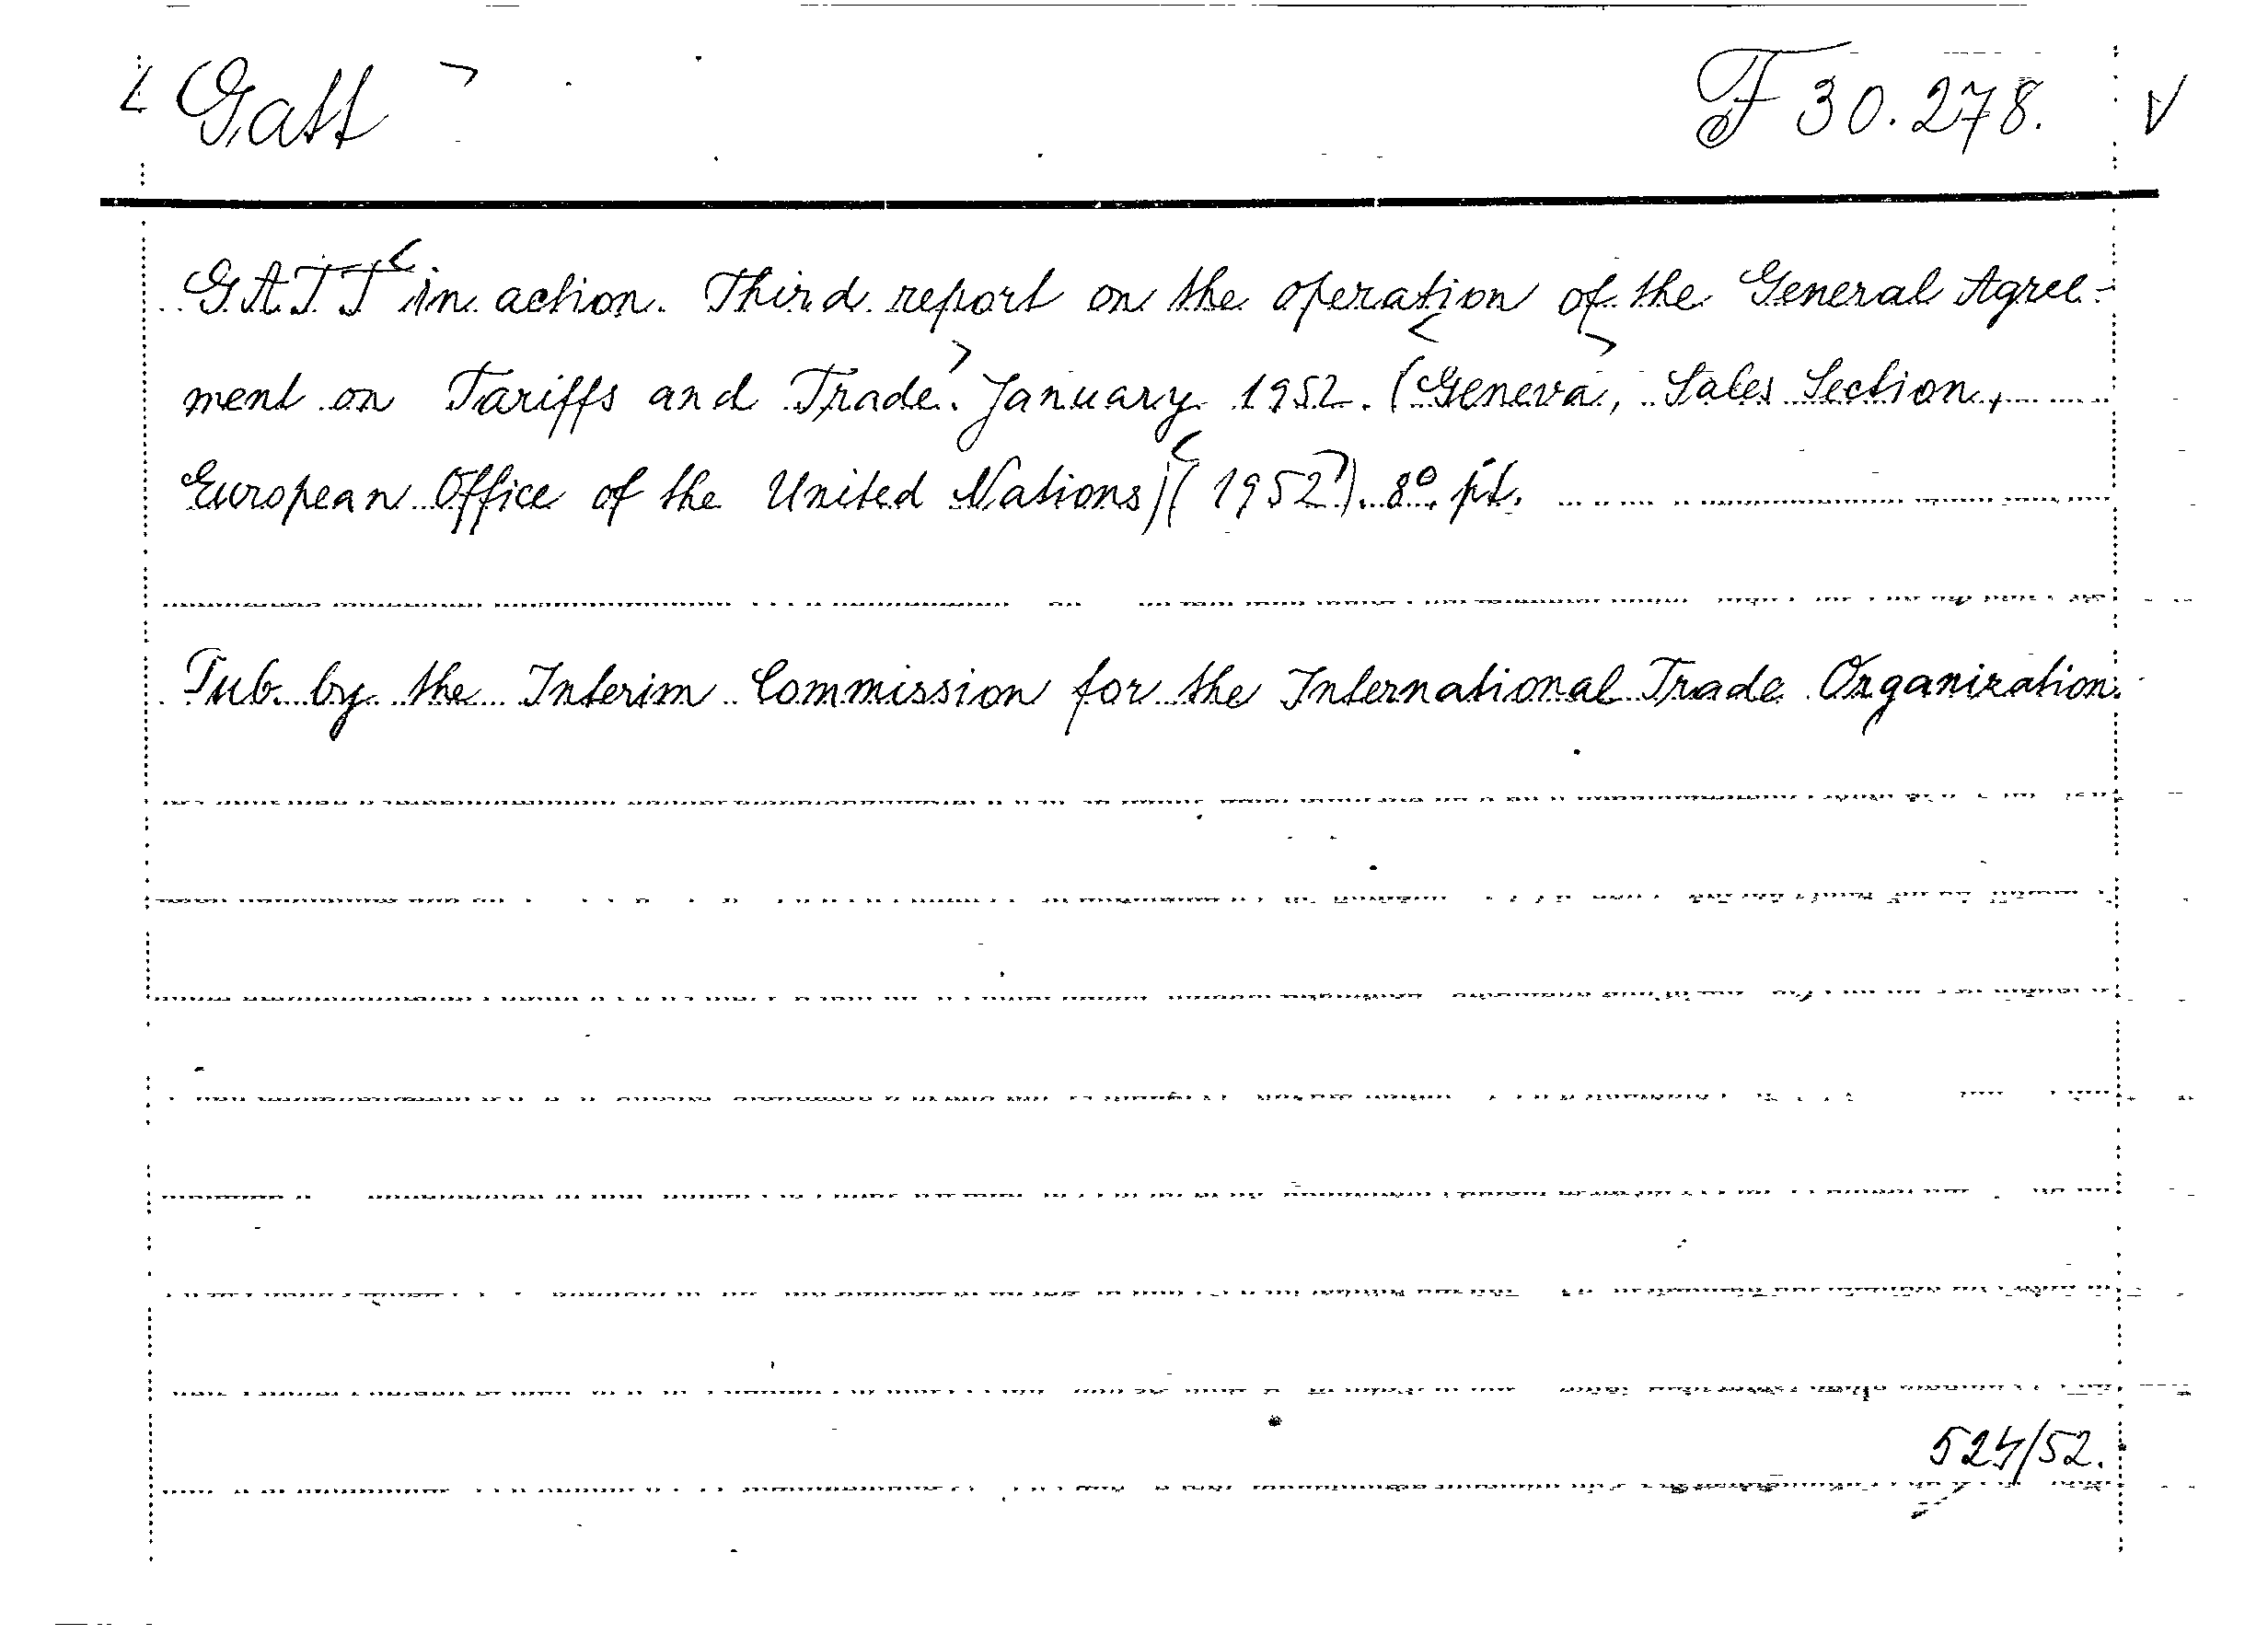 Gatt F 30.278. V
GATT in action. Third report on the operation of the General Agree-
ment on Tariffs and Trade. January 1952. (Geneva, Sales Section,
European Office of the United Nations)(1952). 8° pt.
Pub. by the Interim Commission for the International Trade Organization.
524/52.